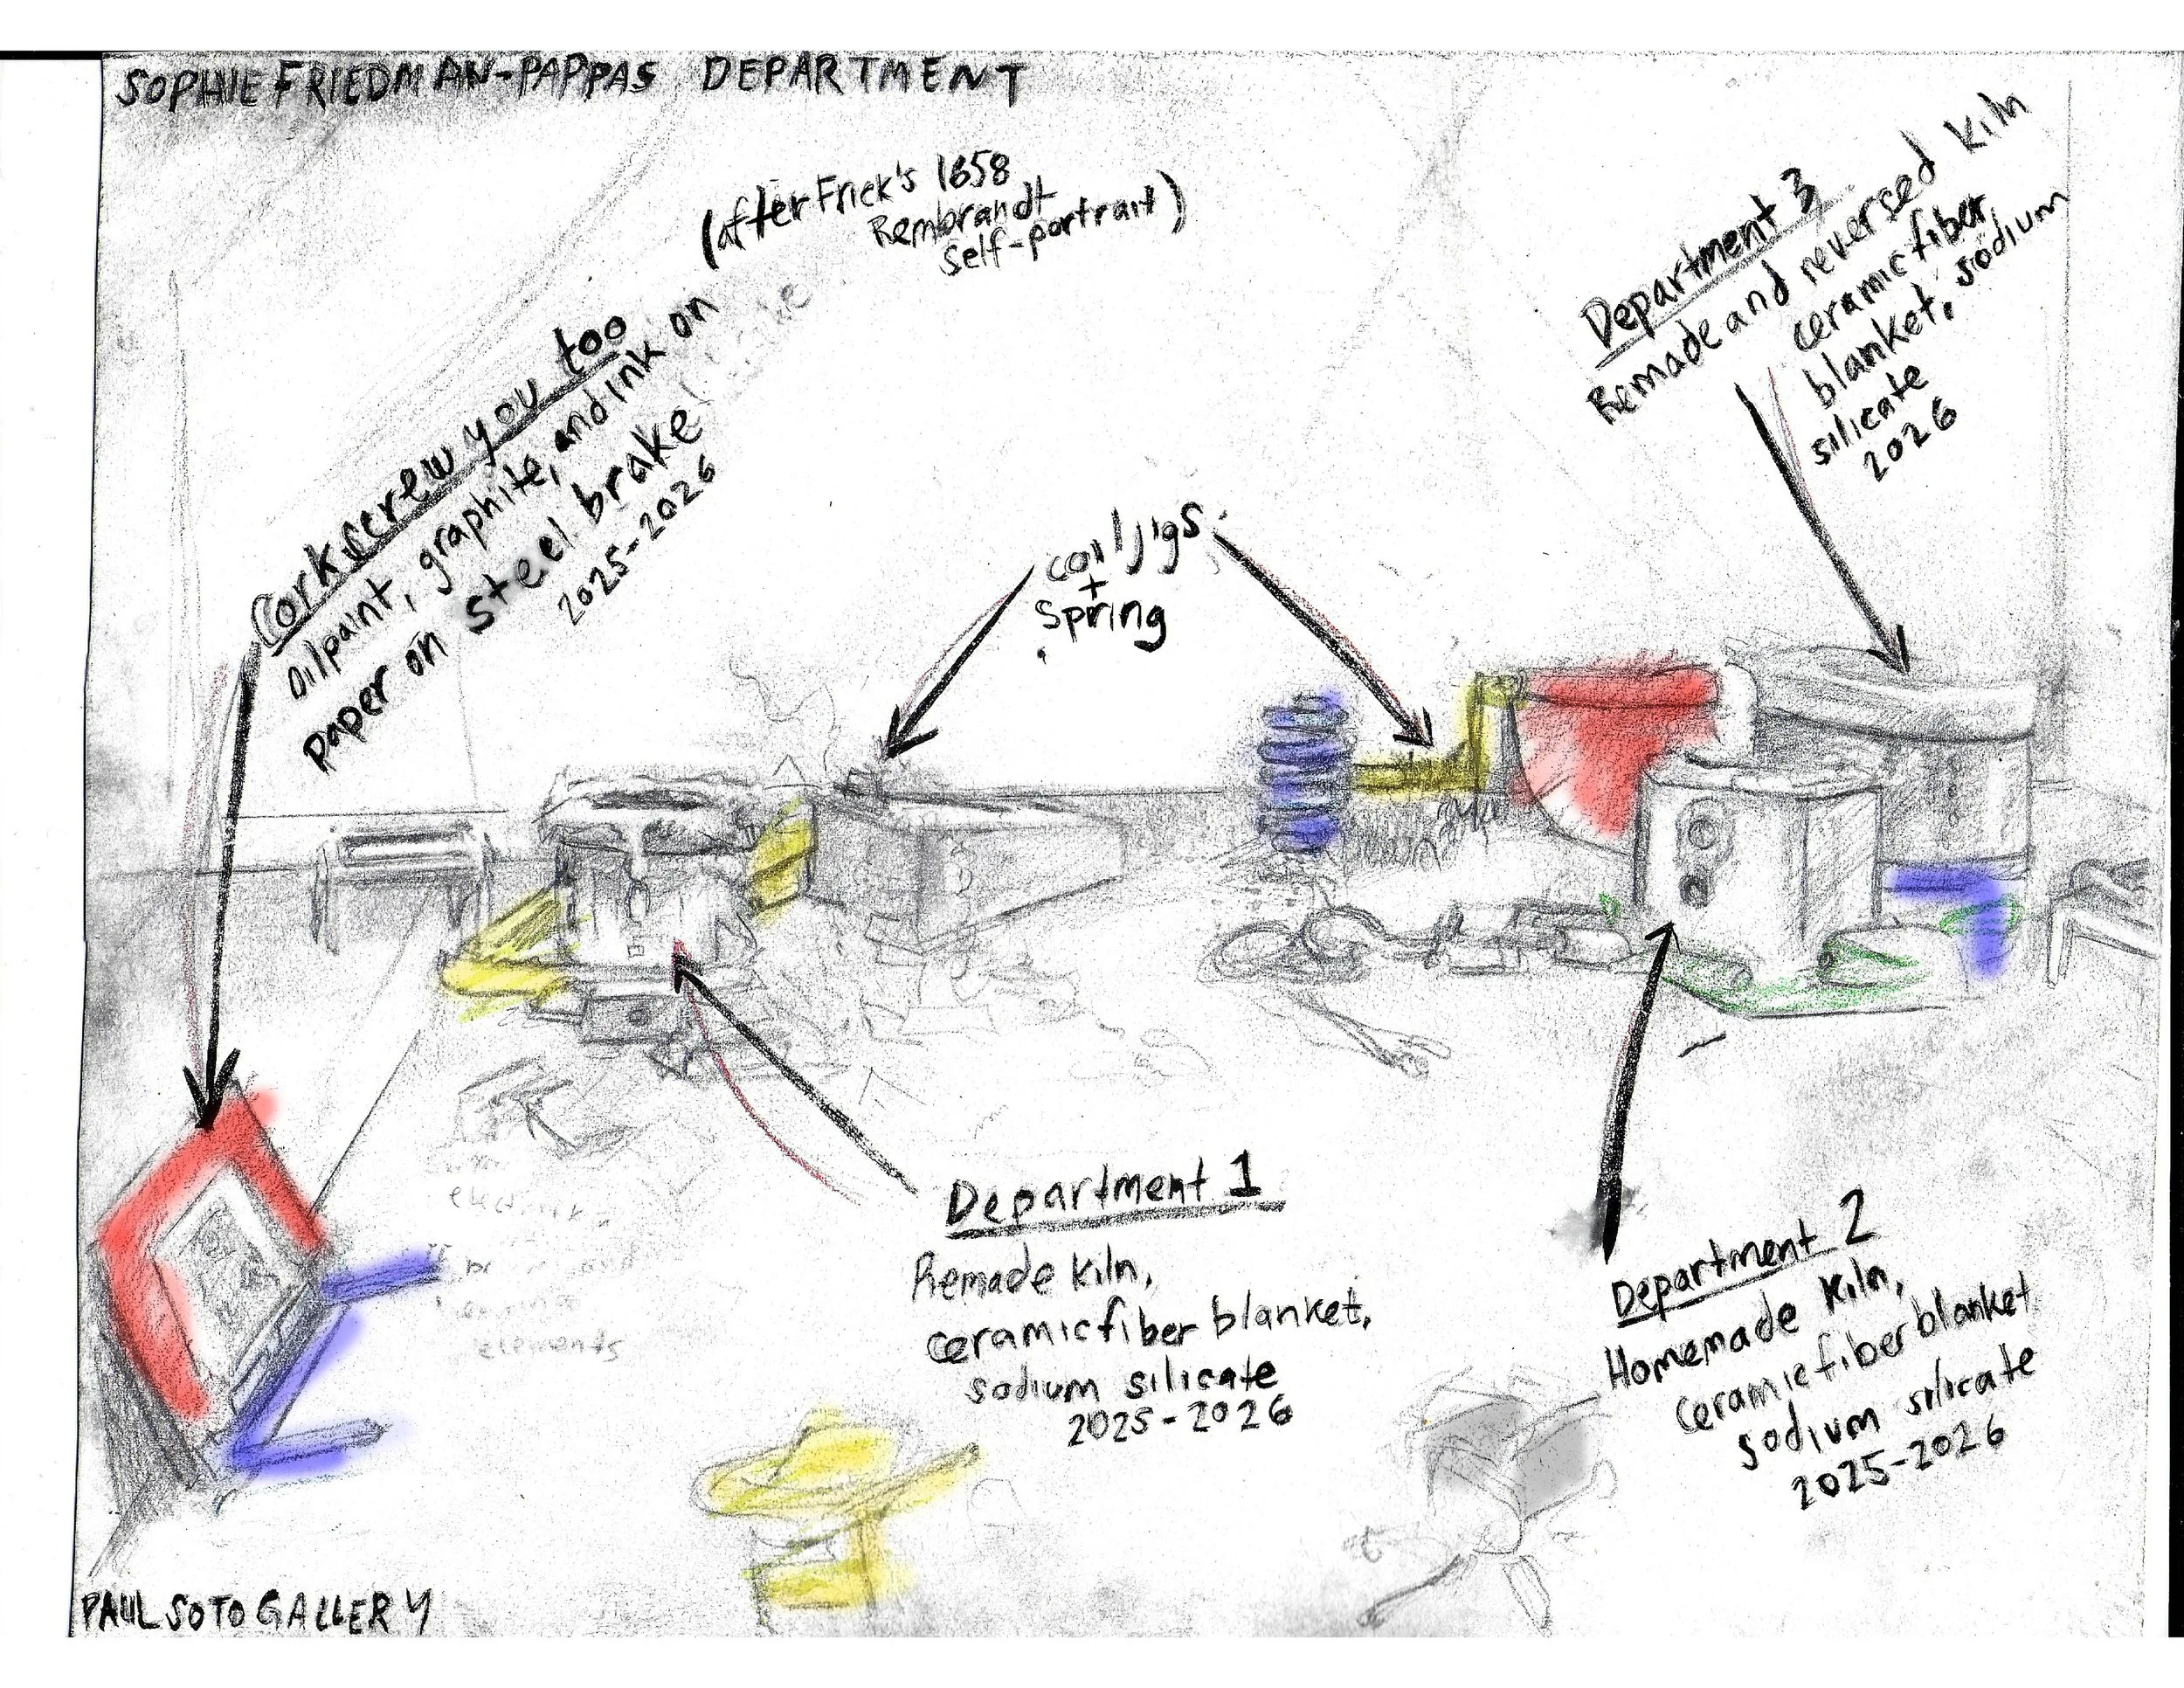 SOPHIE FRIEDMAN-PAPPAS DEPARTMENT
(after Frick's 1658
Rembrandt
self-portrait)
Corkscrew you too
Oilpaint, graphite, and ink on
paper on steel brake
2025-2026
coil jigs
+
Spring
Department 3
Remade and reversed kiln
ceramic fiber
blanket, sodium
silicate
2026
Department 1
Remade kiln,
ceramic fiber blanket,
sodium silicate
2025-2026
Department 2
Homemade kiln,
ceramic fiber blanket
sodium silicate
2025-2026
elements
PAUL SOTO GALLERY